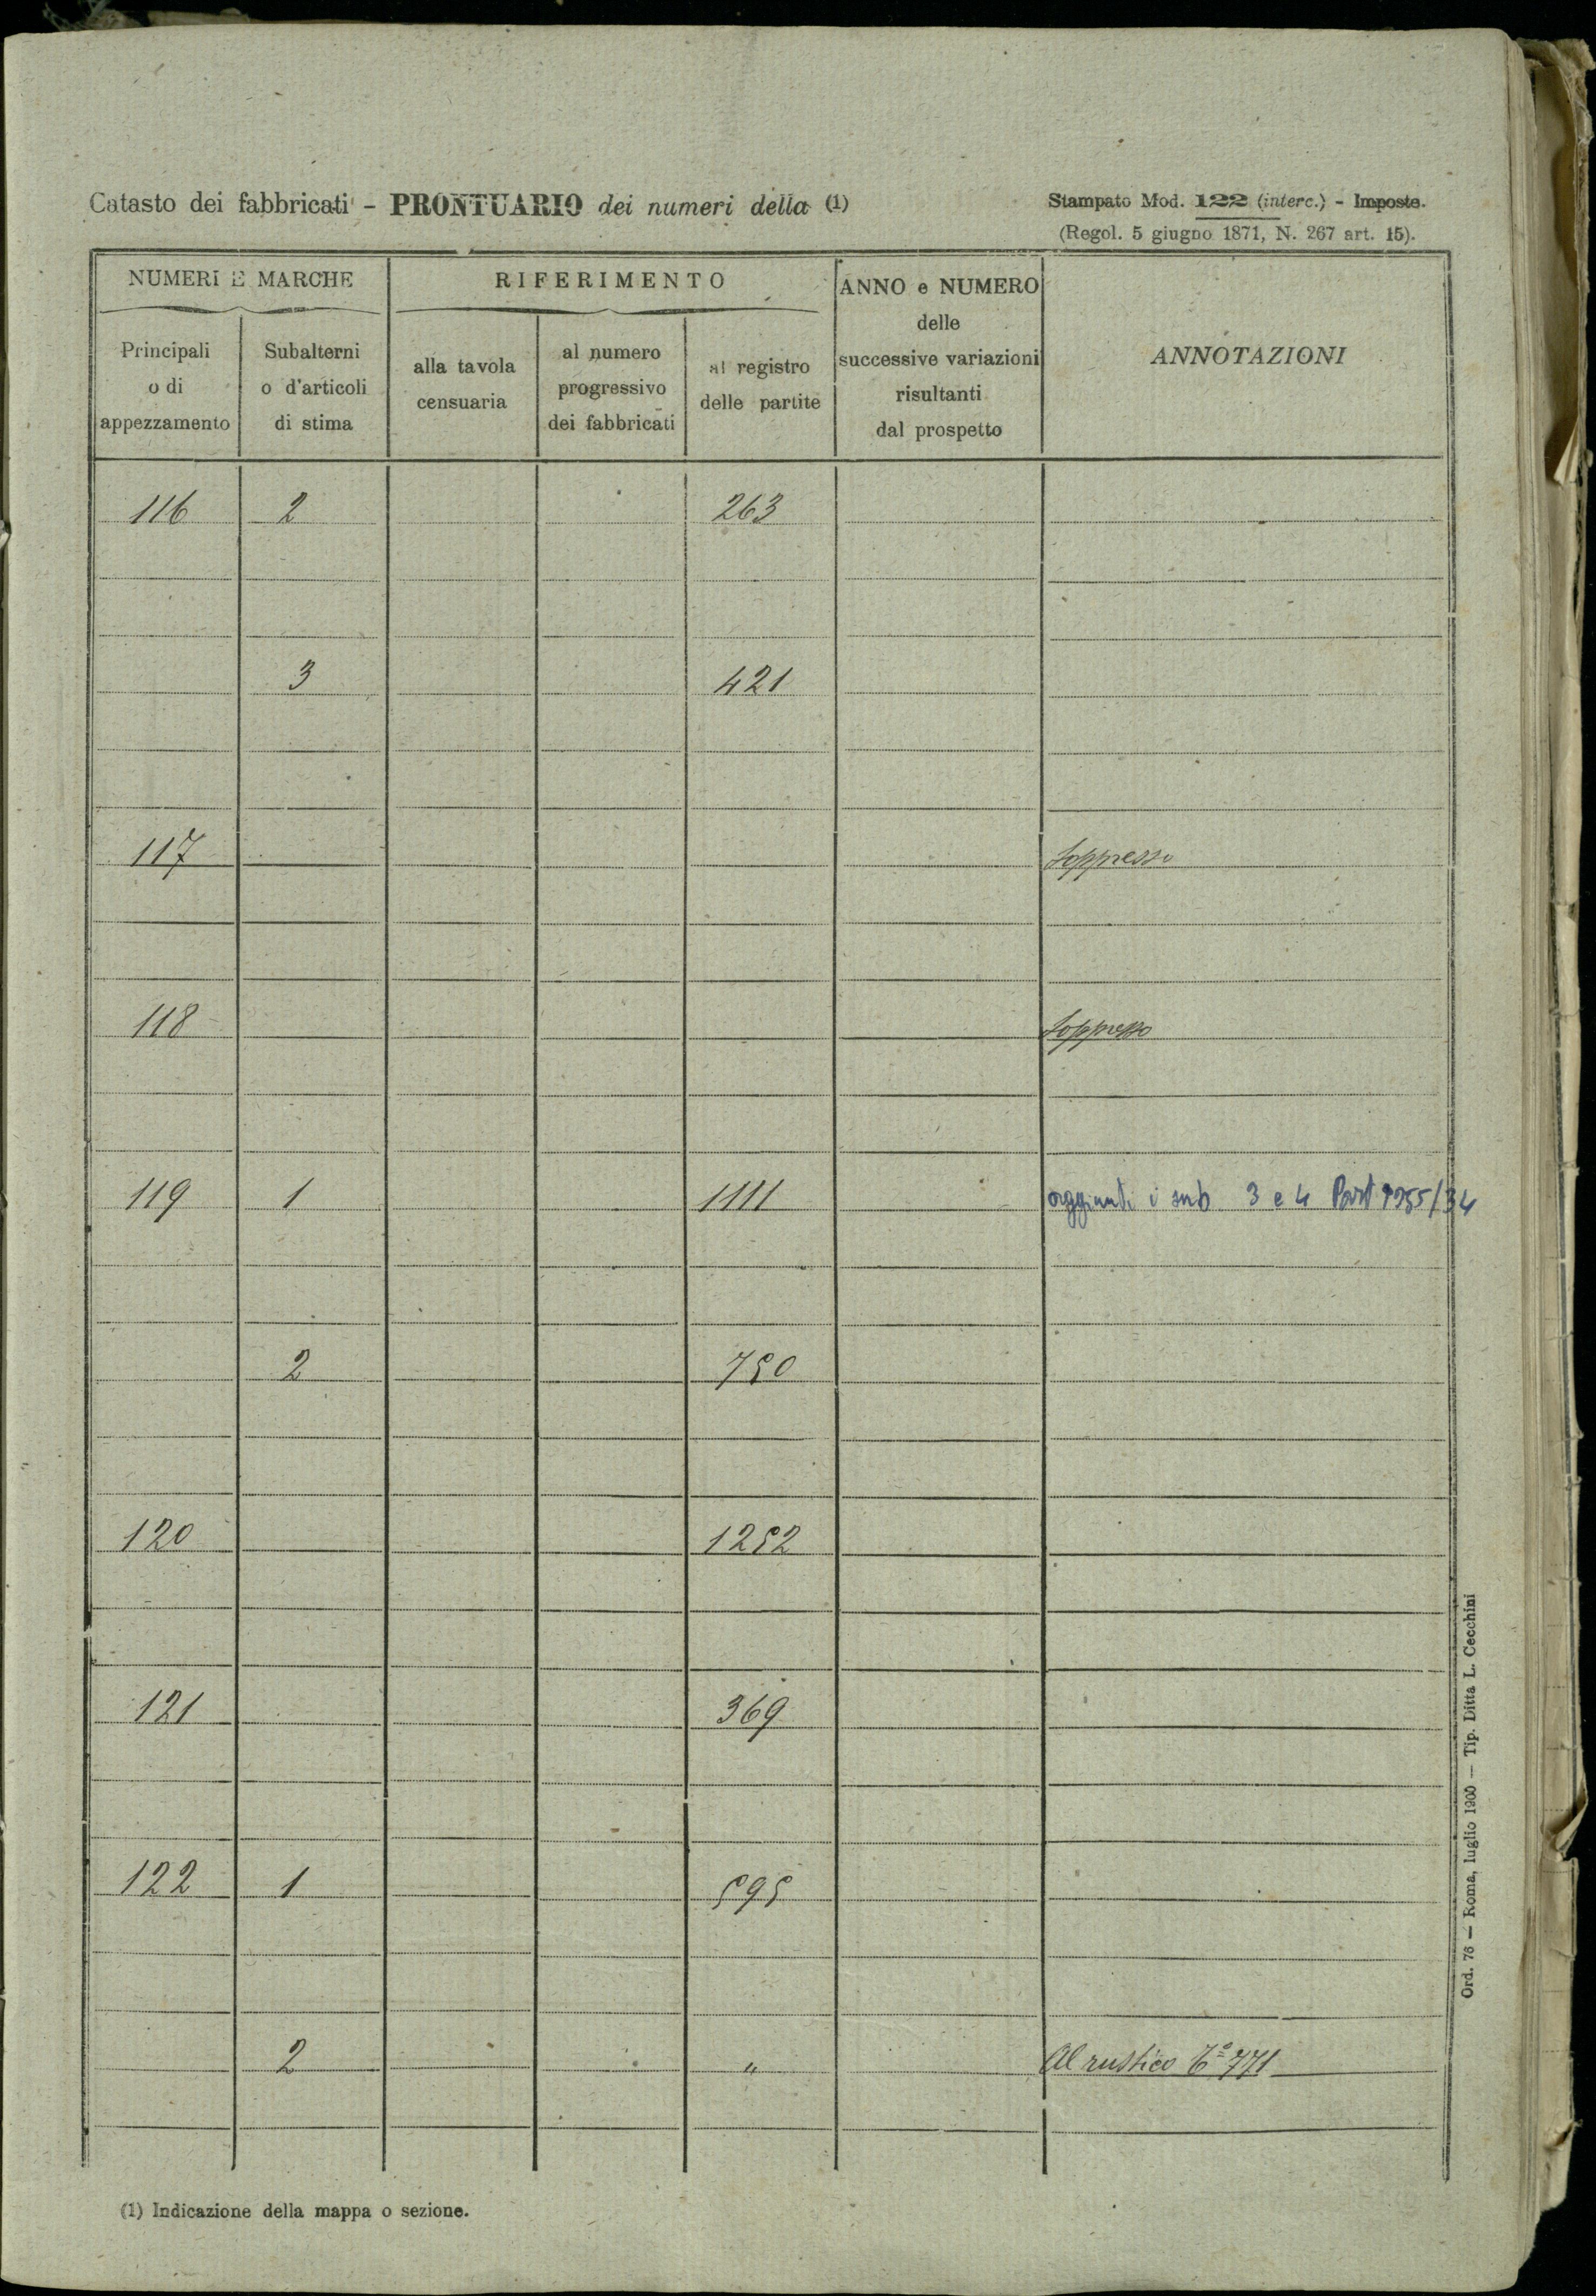 Catasto dei fabbricati - PRONTUARIO dei numeri della (1)
Stampato Mod. 122 (interc.) - Imposte.
(Regol. 5 giugno 1871, N. 267 art. 15).
NUMERI E MARCHE
RIFERIMENTO
ANNO e NUMERO
delle
successive variazioni
risultanti
dal prospetto
ANNOTAZIONI
Principali
o di
appezzamento
Subalterni
o d'articoli
di stima
alla tavola
censuaria
al numero
progressivo
dei fabbricati
al registro
delle partite
116 2 263
3 421
117 Soppresso
118 Soppresso
119 1 1111 aggiunti i sub 3 e 4
2 750
120 1252
121 369
122 1 595
2 " Al rustico 771
Ord. 76 — Roma, luglio 1900 — Tip. Ditta L. Cecchini
(1) Indicazione della mappa o sezione.